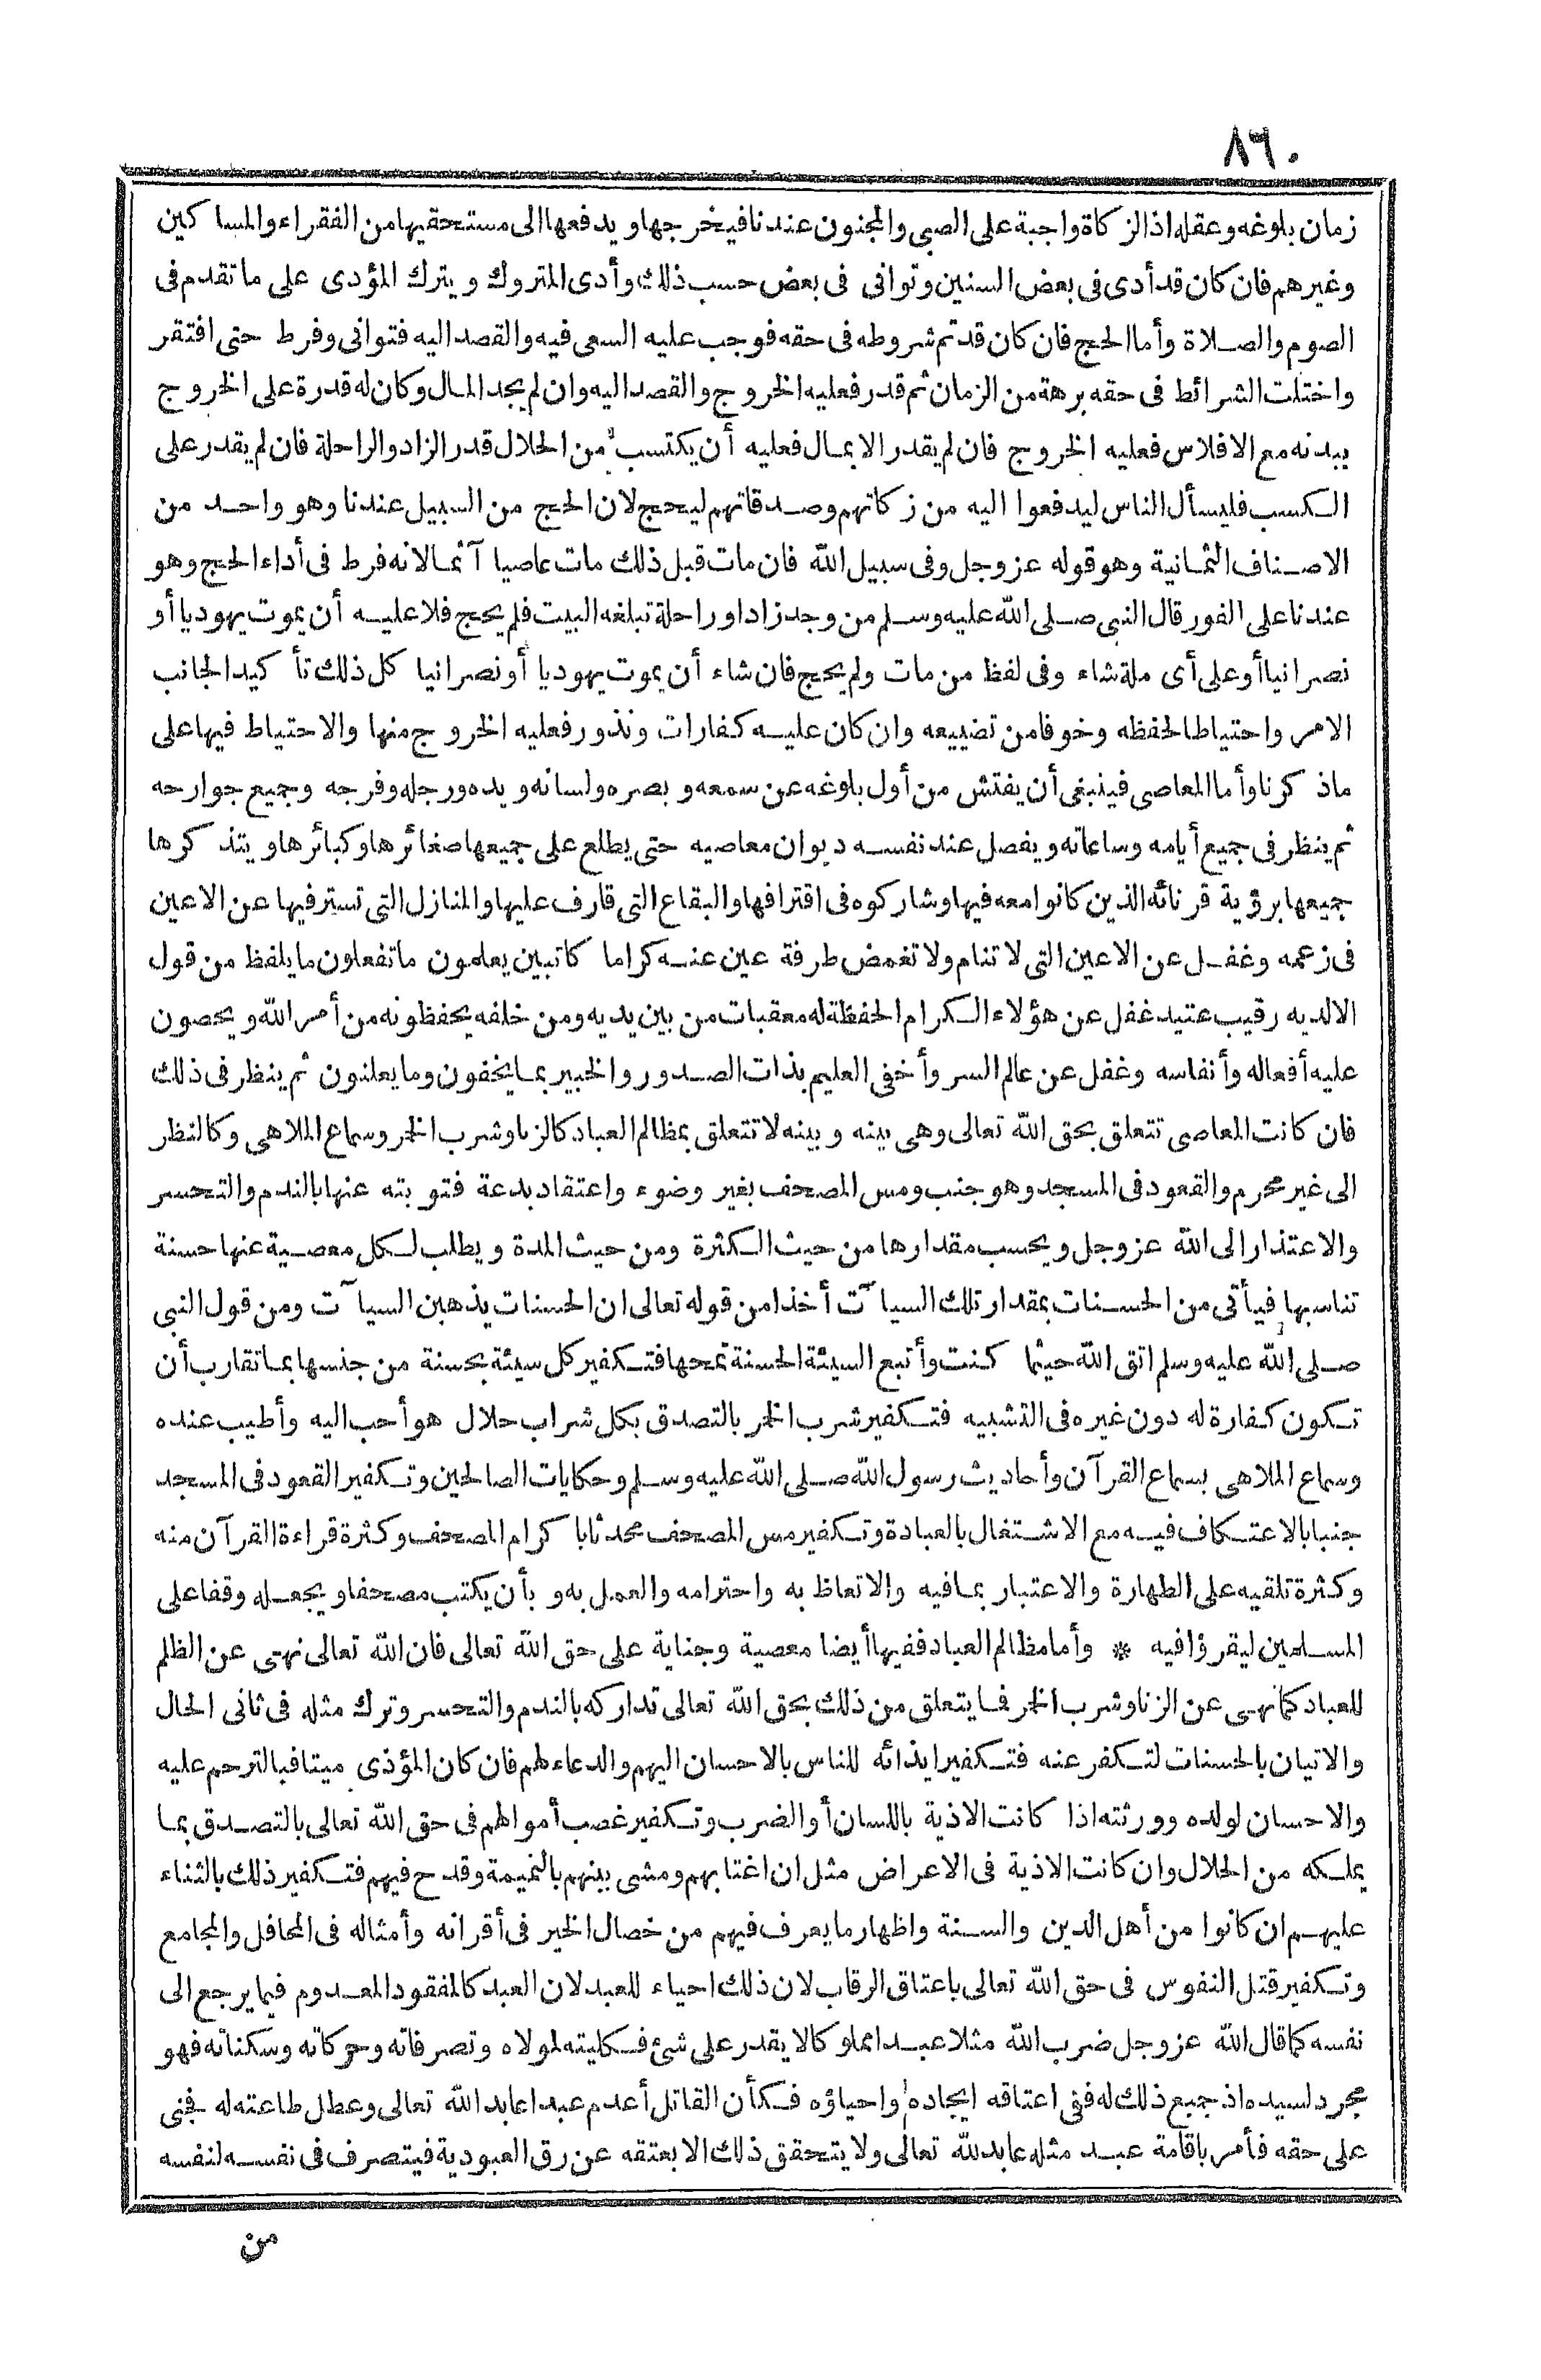 ٨٦٠
زمان بلوغه وعقله اذ الزكاة واجبة على الصبى والمجنون عندنا فيخرجها ويدفعها الى مستحقيها من الفقراء والمساكين
وغيرهم فان كان قد أدى فى بعض السنين وتوانى فى بعض حسب ذلك وأدى المتروك ويترك المؤدى على ما تقدم فى
الصوم والصلاة وأما الحج فان كان قد تم شروطه فى حقه فوجب عليه السعى فيه والقصد اليه فتوانى وفرط حتى افتقر
واختلت الشرائط فى حقه برهة من الزمان ثم قدر فعليه الخروج والقصد اليه وان لم يجد المال وكان له قدرة على الخروج
ببدنه مع الافلاس فعليه الخروج فان لم يقدر الا بمال فعليه أن يكتسب من الحلال قدر الزاد والراحلة فان لم يقدر على
الكسب فليسأل الناس ليدفعوا اليه من زكاتهم وصدقاتهم ليحج لان الحج من السبيل عندنا وهو واحد من
الاصناف الثمانية وهو قوله عز وجل وفى سبيل الله فان مات قبل ذلك مات عاصيا آثما لانه فرط فى أداء الحج وهو
عندنا على الفور قال النبى صلى الله عليه وسلم من وجد زادا وراحلة تبلغه البيت فلم يحج فلا عليه أن يموت يهوديا أو
نصرانيا أو على أى ملة شاء وفى لفظ من مات ولم يحج فان شاء أن يموت يهوديا أو نصرانيا كل ذلك تأكيد الجانب
الامر واحتياطا لحفظه وخوفا من تضييعه وان كان عليه كفارات ونذور فعليه الخروج منها والاحتياط فيها على
ما ذكرنا وأما المعاصى فينبغى أن يفتش من أول بلوغه عن سمعه وبصره ولسانه ويده ورجله وفرجه وجميع جوارحه
ثم ينظر فى جميع أيامه وساعاته ويفصل عند نفسه ديوان معاصيه حتى يطلع على جميعها صغائرها وكبائرها ويتذكرها
جميعها برؤية قرنائه الذين كانوا معه فيها وشاركوه فى اقترافها والبقاع التى قارف عليها والمنازل التى تستر فيها عن الاعين
فى زعمه وغفل عن الاعين التى لا تنام ولا تغمض طرفة عين عنه كراما كاتبين يعلمون ما تفعلون ما يلفظ من قول
الا لديه رقيب عتيد غفل عن هؤلاء الكرام الحفظة له معقبات من بين يديه ومن خلفه يحفظونه من أمر الله ويحصون
عليه أفعاله وأنفاسه وغفل عن عالم السر وأخفى العليم بذات الصدور والخبير بما يخفون وما يعلنون ثم ينظر فى ذلك
فان كانت المعاصى تتعلق بحق الله تعالى وهى بينه وبينه لا تتعلق بمظالم العباد كالزنا وشرب الخمر وسماع الملاهى وكالنظر
الى غير محرم والقعود فى المسجد وهو جنب ومس المصحف بغير وضوء واعتقاد بدعة فتوبته عنها بالندم والتحسر
والاعتذار الى الله عز وجل ويحسب مقدارها من حيث الكثرة ومن حيث المدة ويطلب لكل معصية عنها حسنة
تناسبها فيأتى من الحسنات بمقدار تلك السيآت أخذا من قوله تعالى ان الحسنات يذهبن السيآت ومن قول النبى
صلى الله عليه وسلم اتق الله حيثما كنت وأتبع السيئة الحسنة تمحها فتكفير كل سيئة بحسنة من جنسها بما تقارب أن
تكون كفارة له دون غيره فى التشبيه فتكفير شرب الخمر بالتصدق بكل شراب حلال هو أحب اليه وأطيب عنده
وسماع الملاهى بسماع القرآن وأحاديث رسول الله صلى الله عليه وسلم وحكايات الصالحين وتكفير القعود فى المسجد
جنبا بالاعتكاف فيه مع الاشتغال بالعبادة وتكفير مس المصحف محدثا باكرام المصحف وكثرة قراءة القرآن منه
وكثرة تلقيه على الطهارة والاعتبار بما فيه والاتعاظ به واحترامه والعمل به وبأن يكتب مصحفا ويجعله وقفا على
المسلمين ليقرؤا فيه * وأما مظالم العباد ففيها أيضا معصية وجناية على حق الله تعالى فان الله تعالى نهى عن الظلم
للعباد كما نهى عن الزنا وشرب الخمر فما يتعلق من ذلك بحق الله تعالى تداركه بالندم والتحسر وترك مثله فى ثانى الحال
والاتيان بالحسنات لتكفر عنه فتكفير ايذائه للناس بالاحسان اليهم والدعاء لهم فان كان المؤذى ميتا فبالترحم عليه
والاحسان لولده وورثته اذا كانت الاذية باللسان أو الضرب وتكفير غصب أموالهم فى حق الله تعالى بالتصدق بما
يملكه من الحلال وان كانت الاذية فى الاعراض مثل ان اغتابهم ومشى بينهم بالنميمة وقدح فيهم فتكفير ذلك بالثناء
عليهم ان كانوا من أهل الدين والسنة واظهار ما يعرف فيهم من خصال الخير فى أقرانه وأمثاله فى المحافل والمجامع
وتكفير قتل النفوس فى حق الله تعالى باعتاق الرقاب لان ذلك احياء للعبد لان العبد كالمفقود المعدوم فيما يرجع الى
نفسه كما قال الله عز وجل ضرب الله مثلا عبدا مملوكا لا يقدر على شئ فكليته لمولاه وتصرفاته وحركاته وسكناته فهو
مجرد لسيده اذ جميع ذلك له ففى اعتاقه ايجاده واحياؤه فكأن القاتل أعدم عبدا عابد الله تعالى وعطل طاعته له فجنى
على حقه فأمر باقامة عبد مثله عابد لله تعالى ولا يتحقق ذلك الا بعتقه عن رق العبودية فيتصرف فى نفسه لنفسه
من